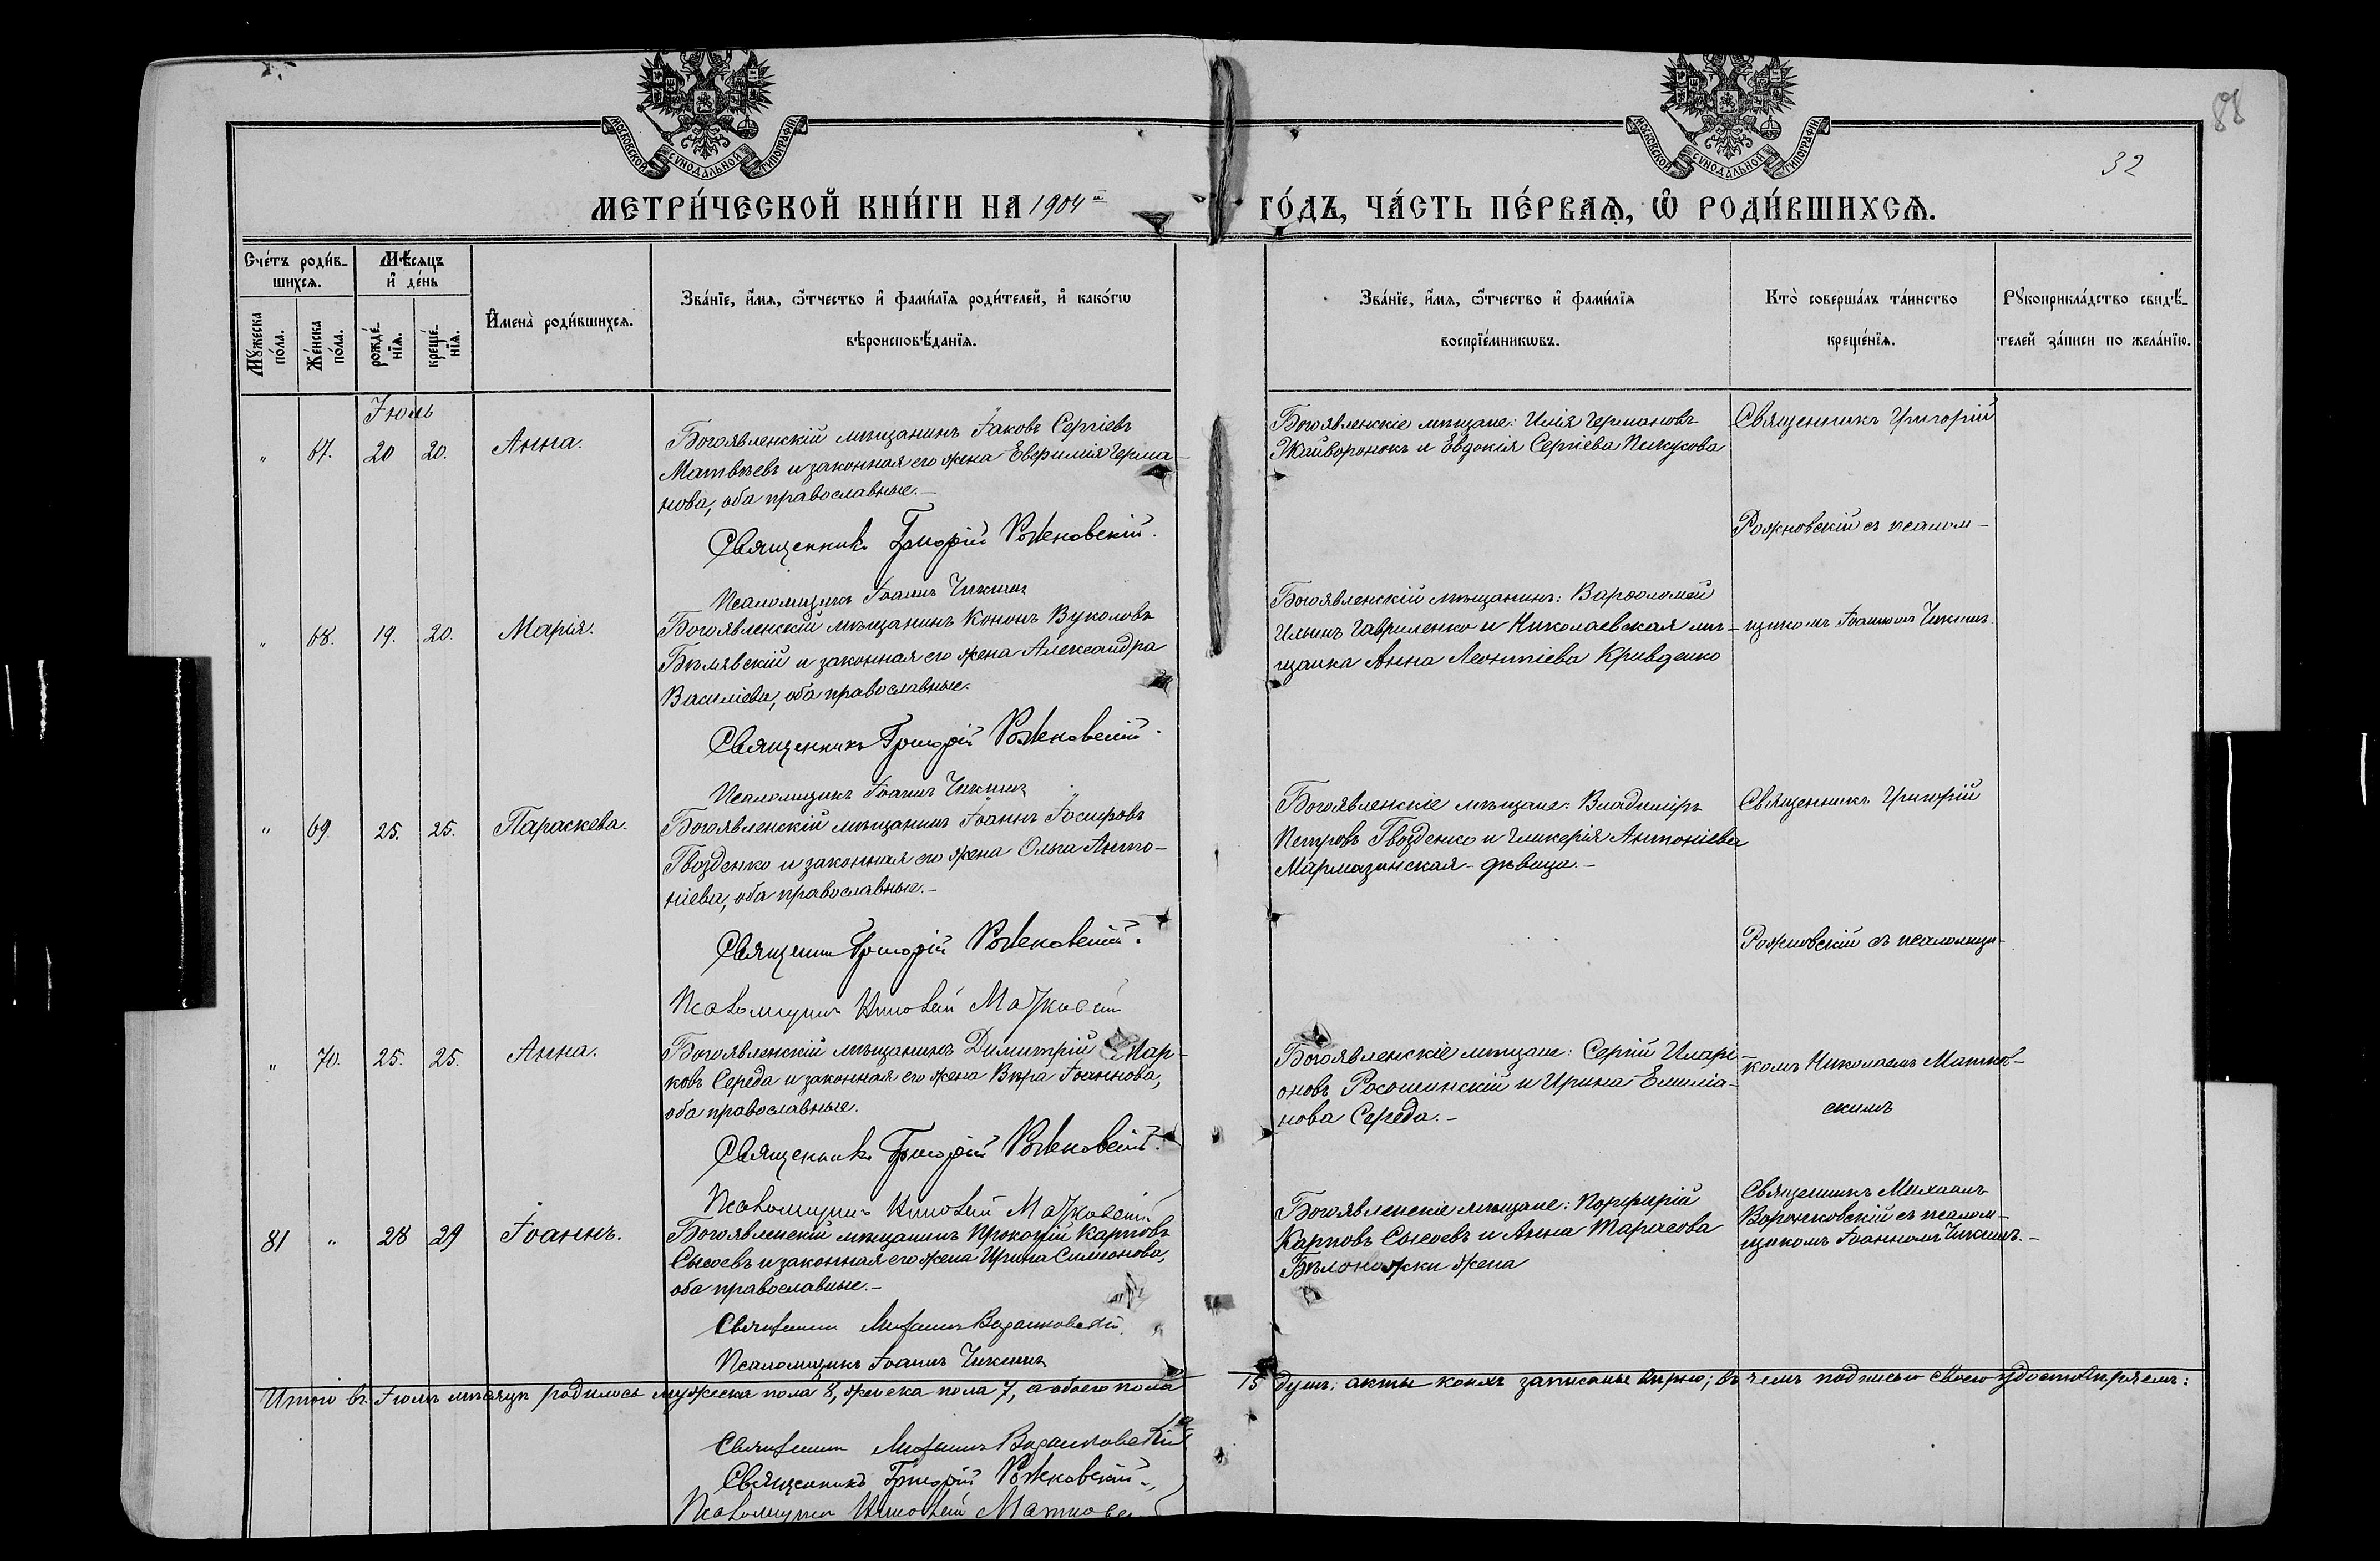 88
32
МОСКОВСКОЙ СѴНОДАЛЬНОЙ ТИПОГРАФІИ
МОСКОВСКОЙ СѴНОДАЛЬНОЙ ТИПОГРАФІИ
МЕТРИ́ЧЕСКОЙ КНИ́ГИ НА 1904й
ГО́ДЪ, ЧА́СТЬ ПЕ́РВАѦ, Ѡ РОДИ́ВШИХСѦ.
Сче́тъ роди́в-
шихсѧ.
Мѣ́сяцъ
и҆ де́нь
Мꙋ́жеска
по́ла.
Же́нска
по́ла.
рожде́-
нїѧ.
креще́-
нїѧ.
И҆мена̀ роди́вшихсѧ.
Зва́нїе, и҆́мѧ, ѻ҆́тчество и҆ фами́лїѧ роди́телей, и҆ како́гѡ
вѣроисповѣ́данїѧ.
Зва́нїе, и҆́мѧ, ѻ҆́тчество и҆ фами́лїѧ
воспрїе́мникѡвъ.
Кто̀ соверша́лъ та́инство
креще́нїѧ.
Рꙋкоприкла́дство свидѣ́-
телей за́писи по жела́нїю.
Іюль
" 67. 20 20. Анна.
Богоявленскій мѣщанинъ Іаковъ Сергіевъ
Матвѣевъ и законная его жена Евфимія Герма-
нова, оба православные.-
Священникъ Григорій Рожновскій.
Псаломщикъ Іоаннъ Чикинъ
Богоявленскіе мѣщане: Илія Германовъ
Жайворонокъ и Евдокія Сергіева
Священникъ Григорій
Рожновскій съ псалом-
" 68. 19. 20. Марія.
Богоявленскій мѣщанинъ Кононъ Вуколовъ
Бѣлявскій и законная его жена Александра
Василіева, оба православные.
Священникъ Григорій Рожновскій.
Псаломщикъ Іоаннъ Чикинъ
Богоявленскій мѣщанинъ: Варѳоломей
Ильинъ Гавриленко и Николаевская мѣ-
щанка Анна Леонтіева Кривденко
щикомъ Іоанномъ Чикинъ.
" 69. 25. 25. Параскева.
Богоявленскій мѣщанинъ Іоаннъ Іосифовъ
Гвозденко и законная его жена Ольга Анто-
ніева, оба православные.-
Священникъ Григорій Рожновскій.
Псаломщикъ Николай Матковскій
Богоявленскіе мѣщане: Владиміръ
Петровъ Гвозденко и Гликерія Антоніева
Мармазинская - дѣвица.-
Священникъ Григорій
Рожновскій съ псаломщи-
" 70. 25. 25. Анна.
Богоявленскій мѣщанинъ Димитрій Мар-
ковъ Середа и законная его жена Вѣра Іоаннова,
оба православные.
Священникъ Григорій Рожновскій.
Псаломщикъ Николай Матковскій
Богоявленскіе мѣщане: Сергій Иларі-
оновъ Росошинскій и Ирина Емиліа-
нова Середа.-
комъ Николаемъ Матков-
скимъ
81 " 28 29 Іоаннъ.
Богоявленскій мѣщанинъ Прокопій Карповъ
Сысоевъ и законная его жена Ирина Симеонова,
оба православные.-
Священникъ Михаилъ Воронковскій.
Псаломщикъ Іоаннъ Чикинъ
Богоявленскіе мѣщане: Порфирій
Карповъ Сысоевъ и Анна Тарасова
Бѣлоножки жена
Священникъ Михаилъ
Воронковскій съ псалом-
щикомъ Іоанномъ Чикинъ.-
Итого въ Іюлѣ мѣсяцѣ родилось мужеска пола 8, женска пола 7, а обоего пола 15 душъ; акты коихъ записаны вѣрно; въ чемъ подписью своею удостовѣряемъ:
Священникъ Михаилъ Воронковскій
Священникъ Григорій Рожновскій
Псаломщикъ Николай Матковс